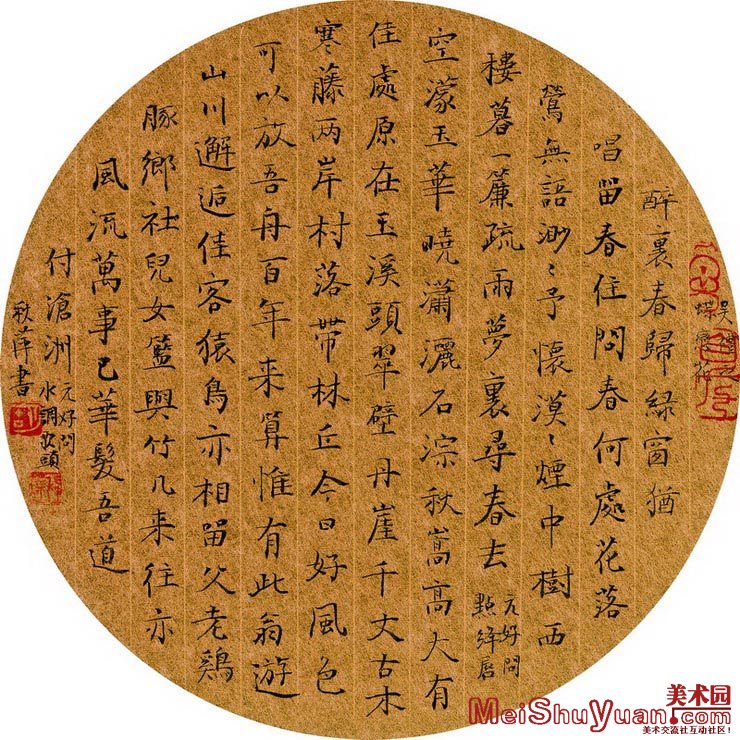 醉裏春歸綠窗猶
唱留春住問春何處花落
鶯無語渺〻予懷漠〻煙中樹西
樓暮一簾疏雨夢裏尋春去 元好問 點絳唇
空濛玉華曉瀟灑石淙秋嵩高大有
佳處原在玉溪頭翠壁丹崖千丈古木
寒藤兩岸村落帶林丘今日好風色
可以放吾舟百年來算惟有此翁遊
山川邂逅佳客猿鳥亦相留父老鷄
豚鄉社兒女籃輿竹几來往亦
風流萬事已華髮吾道
付滄洲 元好問 水調歌頭
秋萍書
美术园
MeiShuYuan.com
美术交流社互动社区！